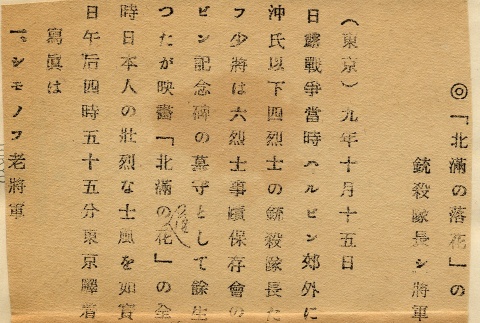 ◎「北滿の落花」の
銃殺隊長シ將軍
（東京）九年十月十五日
日露戰爭當時ハルビン郊外に
沖氏以下四烈士の銃殺隊長た
フ少將は六烈士事蹟保存會の
ビン記念碑の墓守として餘生
つたが映畵「北滿の花」の全
時日本人の壯烈な士風を如實
日午后四時五十五分東京驛着
寫眞は
一、シモノフ老將軍